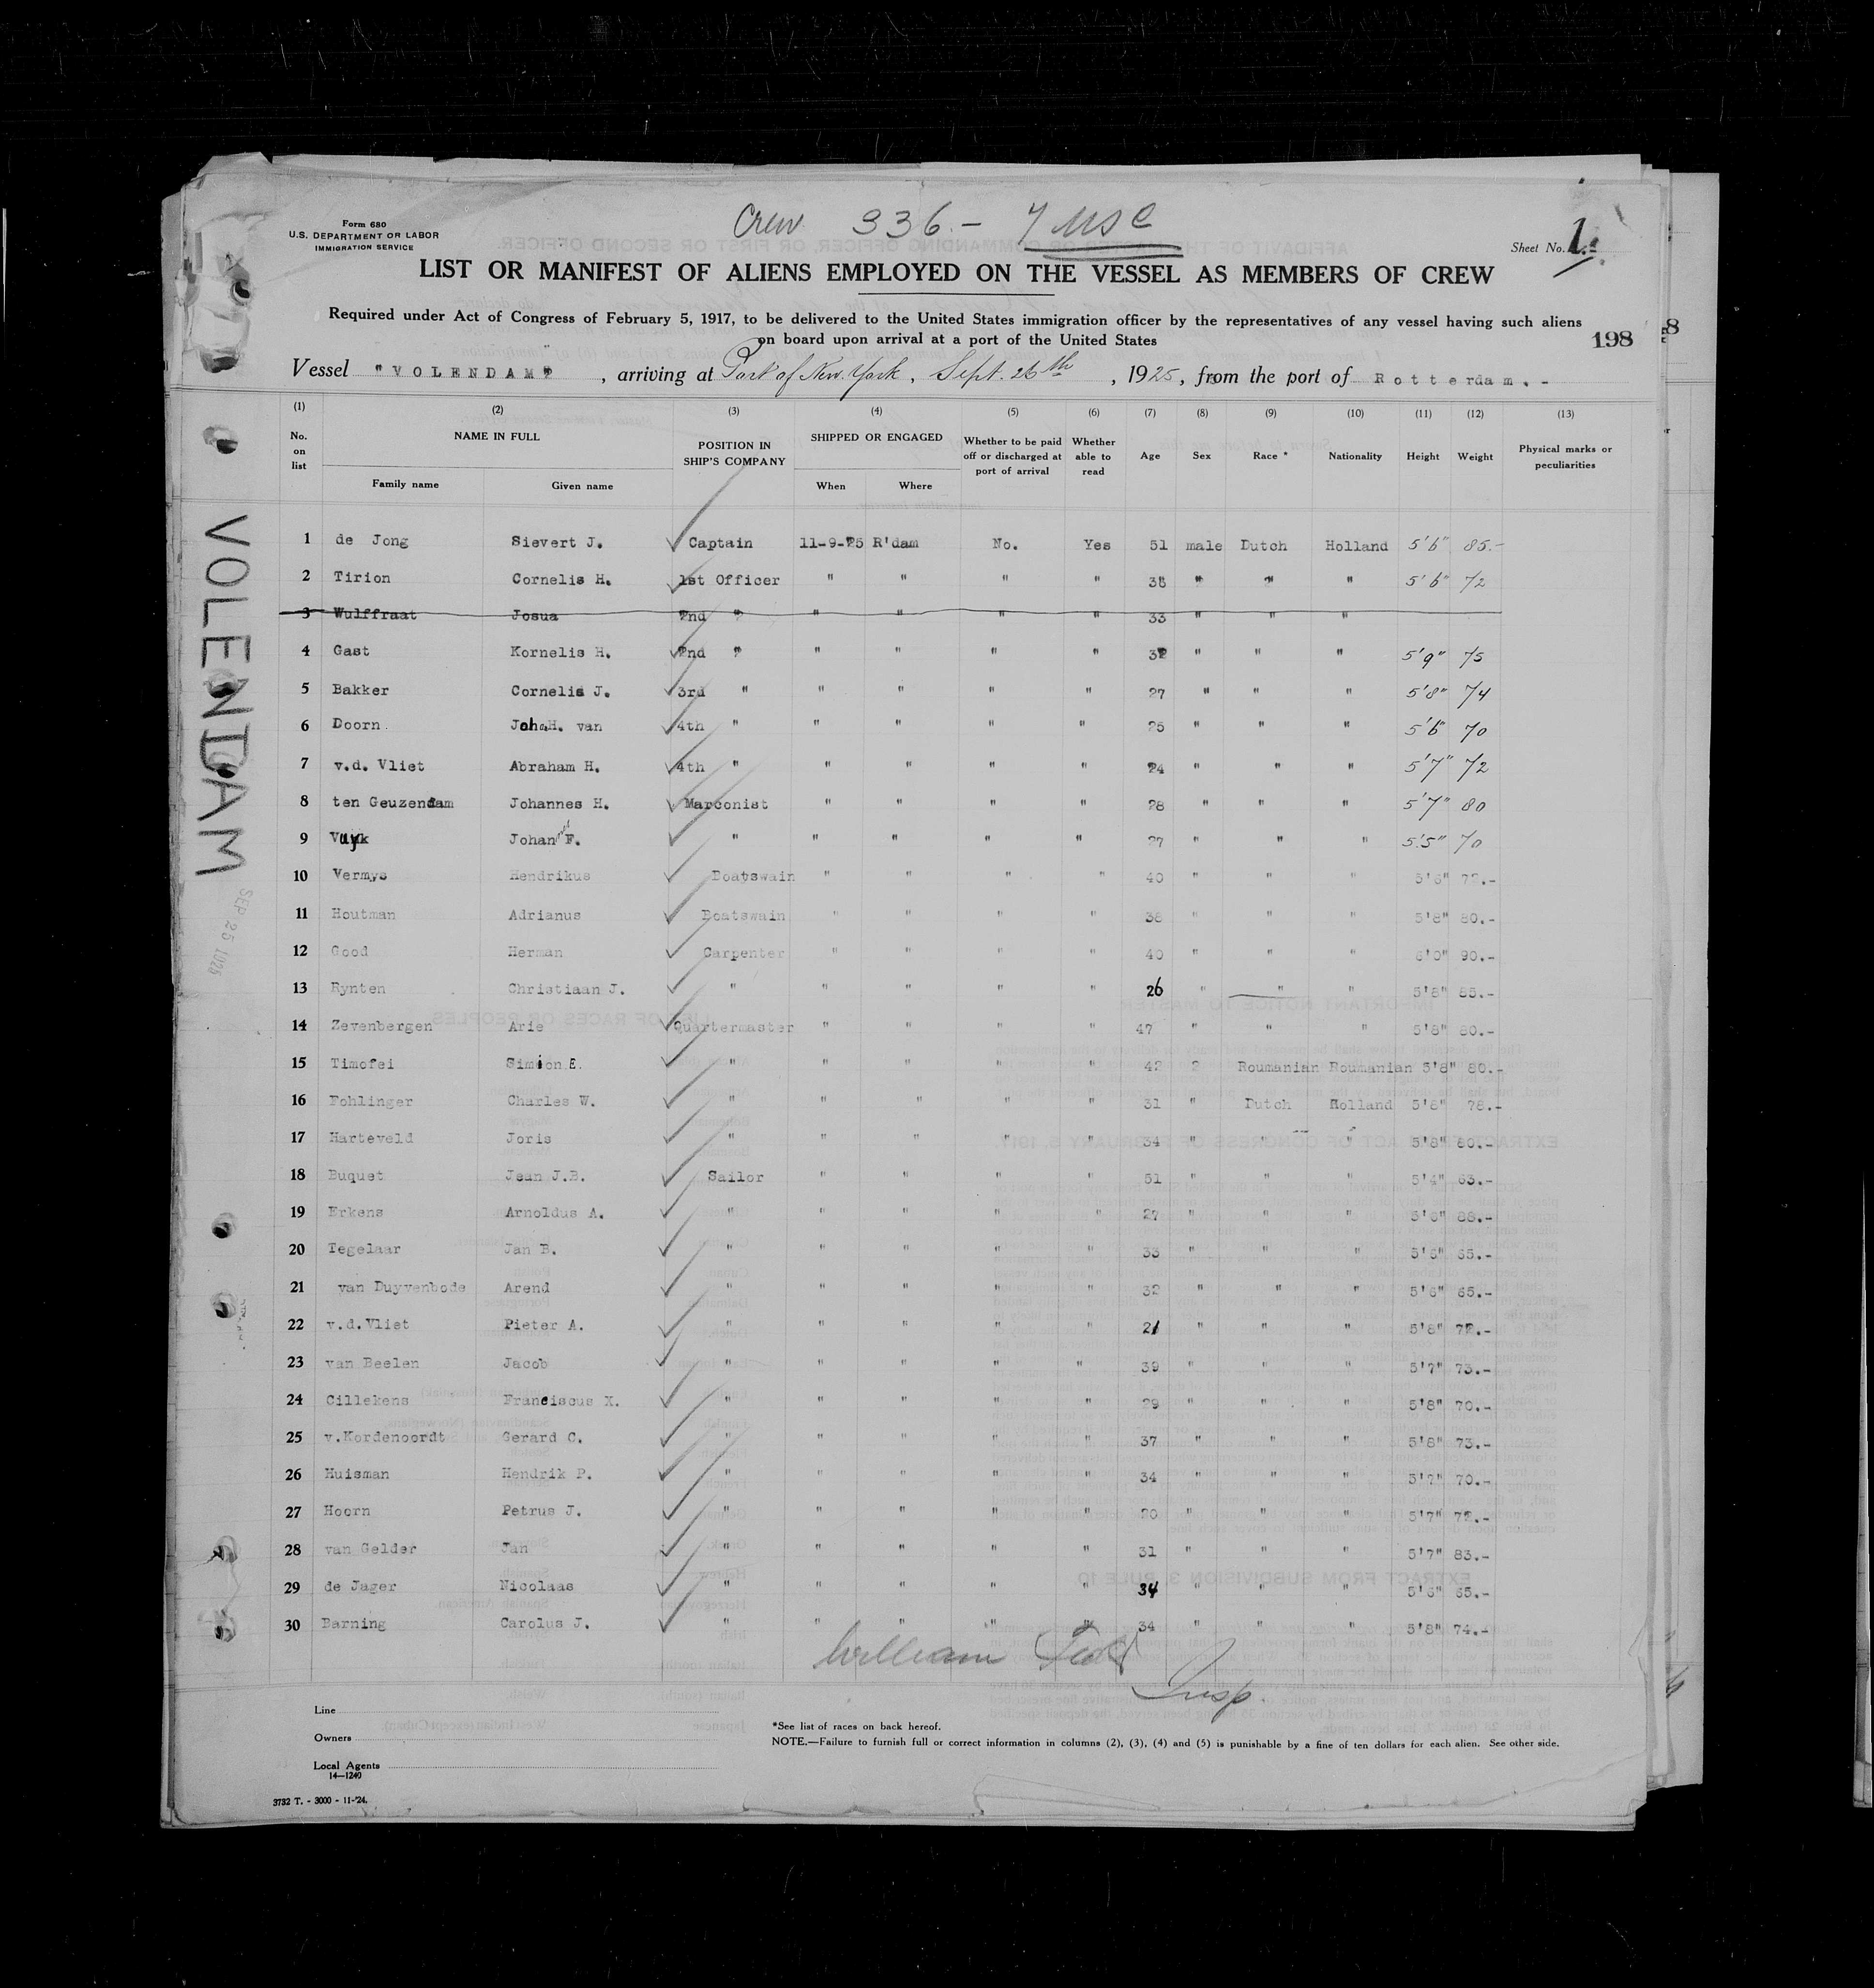 Crew 336 - 7 USC
Form 680
U.S. DEPARTMENT OF LABOR
IMMIGRATION SERVICE
Sheet No. 1.
LIST OR MANIFEST OF ALIENS EMPLOYED ON THE VESSEL AS MEMBERS OF CREW
Required under Act of Congress of February 5, 1917, to be delivered to the United States immigration officer by the representatives of any vessel having such aliens
on board upon arrival at a port of the United States
198
Vessel "VOLENDAM", arriving at Port of New York, Sept. 26th, 1925, from the port of Rotterdam.-
(1) (2) (3) (4) (5) (6) (7) (8) (9) (10) (11) (12) (13)
No. on list NAME IN FULL Family name Given name POSITION IN SHIP'S COMPANY SHIPPED OR ENGAGED When Where Whether to be paid off or discharged at port of arrival Whether able to read Age Sex Race * Nationality Height Weight Physical marks or peculiarities
VOLENDAM
SEP 25 1925
1 de Jong Sievert J. Captain 11-9-25 R'dam No. Yes 51 male Dutch Holland 5'6" 85.-
2 Tirion Cornelis H. 1st Officer " " " " 38 " " " 5'6" 72
3 Wulffraat Josua 2nd " " " " " 33 " " "
4 Gast Kornelis H. 2nd " " " " " 32 " " " 5'9" 75
5 Bakker Cornelis J. 3rd " " " " " 27 " " " 5'8" 74
6 Doorn Joh.H. van 4th " " " " " 25 " " " 5'6" 70
7 v.d. Vliet Abraham H. 4th " " " " " 24 " " " 5'7" 72
8 ten Geuzendam Johannes H. Marconist " " " " 28 " " " 5'7" 80
9 Vuyk Johan F. " " " " " 27 " " " 5'5" 70
10 Vermys Hendrikus Boatswain " " " " 40 " " " 5'6" 72.-
11 Houtman Adrianus Boatswain " " " " 38 " " " 5'8" 80.-
12 Good Herman Carpenter " " " " 40 " " " 6'0" 90.-
13 Rynten Christiaan J. " " " " " 26 " " " 5'8" 85.-
14 Zevenbergen Arie Quartermaster " " " " 47 " " " 5'8" 80.-
15 Timofei Simion E. " " " " " 42 2 Roumanian Roumanian 5'8" 80.-
16 Fohlinger Charles W. " " " " " 31 " Dutch Holland 5'8" 78.-
17 Harteveld Joris " " " " " 34 " " " 5'8" 80.-
18 Buquet Jean J.B. Sailor " " " " 51 " " " 5'4" 63.-
19 Erkens Arnoldus A. " " " " " 27 " " " 5'6" 88.-
20 Tegelaar Jan B. " " " " " 33 " " " 5'6" 65.-
21 van Duyvenbode Arend " " " " " 32 " " " 5'6" 65.-
22 v.d.Vliet Pieter A. " " " " " 21 " " " 5'8" 72.-
23 van Beelen Jacob " " " " " 39 " " " 5'7" 73.-
24 Cillekens Franciscus X. " " " " " 29 " " " 5'8" 70.-
25 v.Kordenoordt Gerard C. " " " " " 37 " " " 5'8" 73.-
26 Huisman Hendrik P. " " " " " 34 " " " 5'7" 70.-
27 Hoorn Petrus J. " " " " " 20 " " " 5'7" 72.-
28 van Gelder Jan " " " " " 31 " " " 5'7" 83.-
29 de Jager Nicolaas " " " " " 34 " " " 5'6" 65.-
30 Barning Carolus J. " " " " " 34 " " " 5'8" 74.-
William
Insp.
Line
Owners
Local Agents
14—1240
*See list of races on back hereof.
NOTE.—Failure to furnish full or correct information in columns (2), (3), (4) and (5) is punishable by a fine of ten dollars for each alien. See other side.
3732 T. - 3000 - 11-'24.